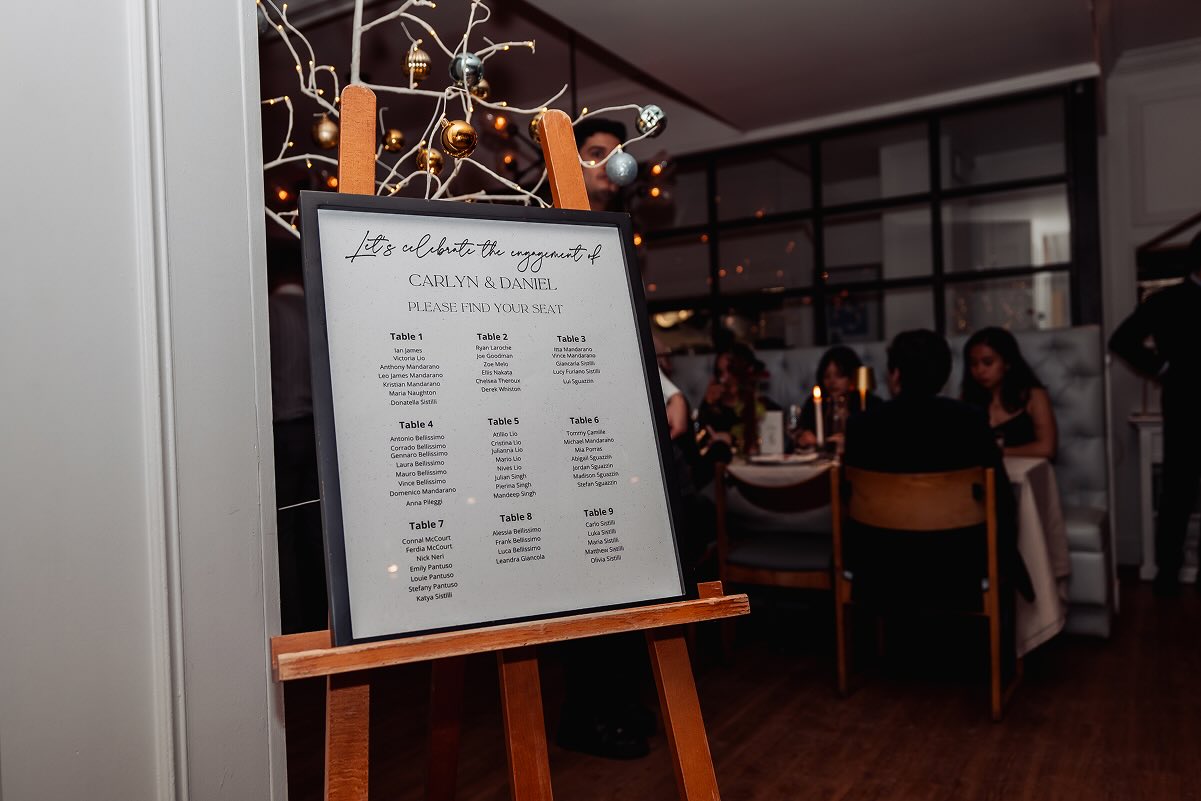 Let's celebrate the engagement of
CARLYN & DANIEL
PLEASE FIND YOUR SEAT
Table 1
Ian James
Victoria Lio
Anthony Mandarano
Leo James Mandarano
Kristian Mandarano
Maria Naughton
Donatella Sistilli
Table 2
Ryan Laroche
Joe Goodman
Zoe Melo
Ellis Nakata
Chelsea Theroux
Derek Whiston
Table 3
Itta Mandarano
Vince Mandarano
Giancarla Sistilli
Lucy Furlano Sistilli
Lui Sguazzin
Table 4
Antonio Bellissimo
Corrado Bellissimo
Gennaro Bellissimo
Laura Bellissimo
Mauro Bellissimo
Vince Bellissimo
Domenico Mandarano
Anna Pileggi
Table 5
Atillio Lio
Cristina Lio
Julianna Lio
Mario Lio
Nives Lio
Julian Singh
Pierina Singh
Mandeep Singh
Table 6
Tommy Camille
Michael Mandarano
Mia Porras
Abigail Sguazzin
Jordan Sguazzin
Madison Sguazzin
Stefan Sguazzin
Table 7
Connal McCourt
Ferdia McCourt
Nick Neri
Emily Pantuso
Louie Pantuso
Stefany Pantuso
Katya Sistilli
Table 8
Alessia Bellissimo
Frank Bellissimo
Luca Bellissimo
Leandra Giancola
Table 9
Carlo Sistilli
Luka Sistilli
Maria Sistilli
Matthew Sistilli
Olivia Sistilli